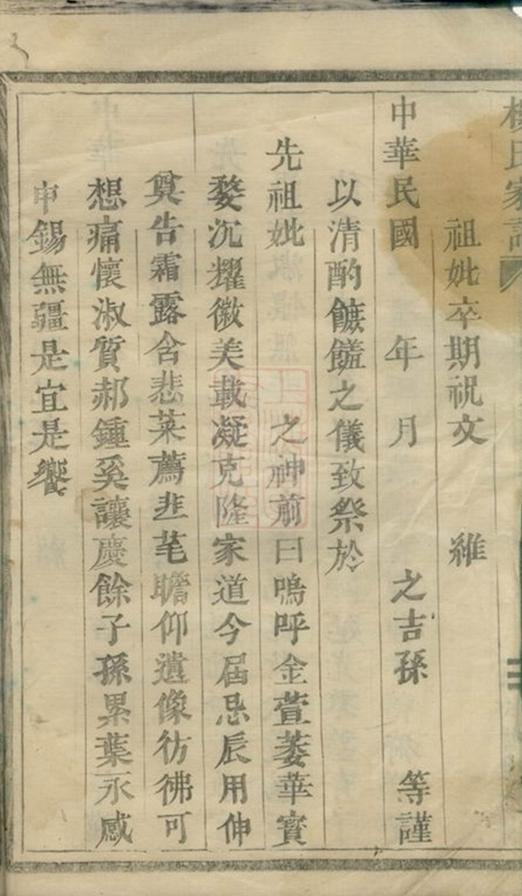 楊氏家譜
祖妣卒期祝文　維
中華民國　年　月　之吉孫　等謹
以清酌饈饈之儀致祭於
先祖妣　之神前曰嗚呼金萱萎華寳
婺沉耀徽美載凝克隆家道今屆忌辰用伸
奠告霜露含悲菜薦韭芼瞻仰遺像彷彿可
想痛懷淑質郝鍾奚讓慶餘子孫累葉永感
申錫無疆是宜是饗